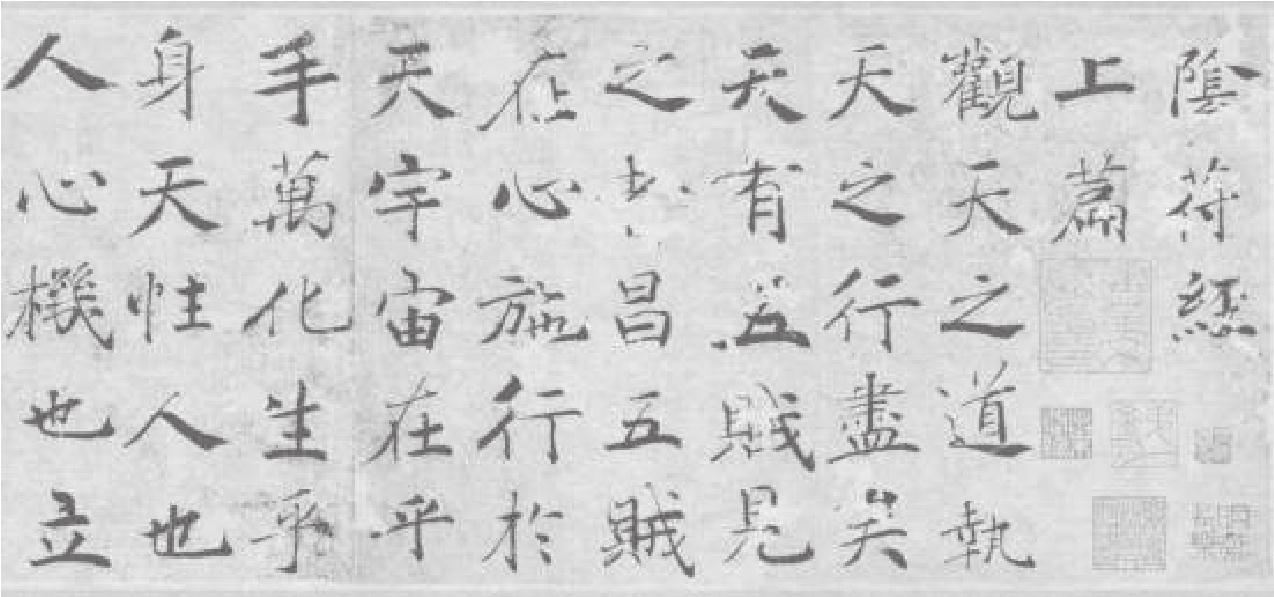 陰符經
上篇
觀天之道執
天之行盡矣
天有五賊見
之者昌五賊
在心施行於
天宇宙在乎
手萬化生乎
身天性人也
人心機也立